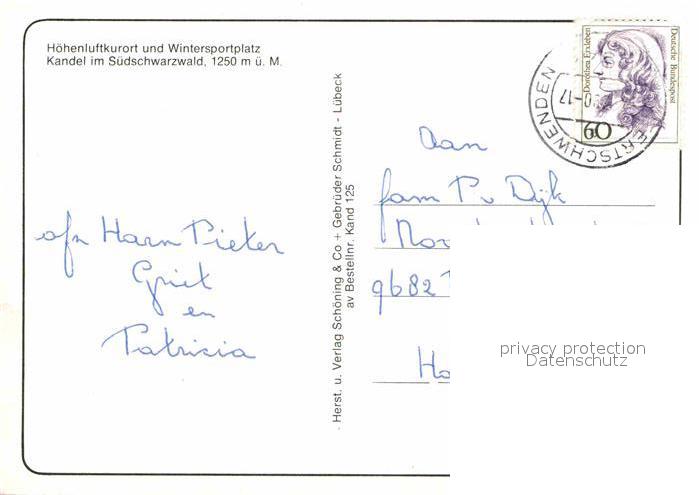 Höhenluftkurort und Wintersportplatz
Kandel im Südschwarzwald, 1250 m ü. M.
afz Harm Pieter
Griet
en
Patricia
Herst. u. Verlag Schöning & Co + Gebrüder Schmidt - Lübeck
av Bestellnr. Kand 125
Deutsche Bundespost
Dorothea Erxleben
60
ERTSCHWENDEN
-17
Aan
fam P. v Dijk
No
9682
Ho
privacy protection
Datenschutz